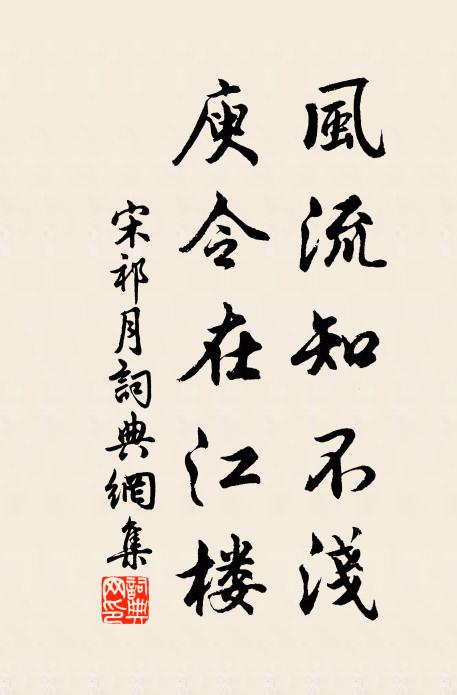 風流知不淺
庾令在江楼
宋祁月詞典網集
詞典网印